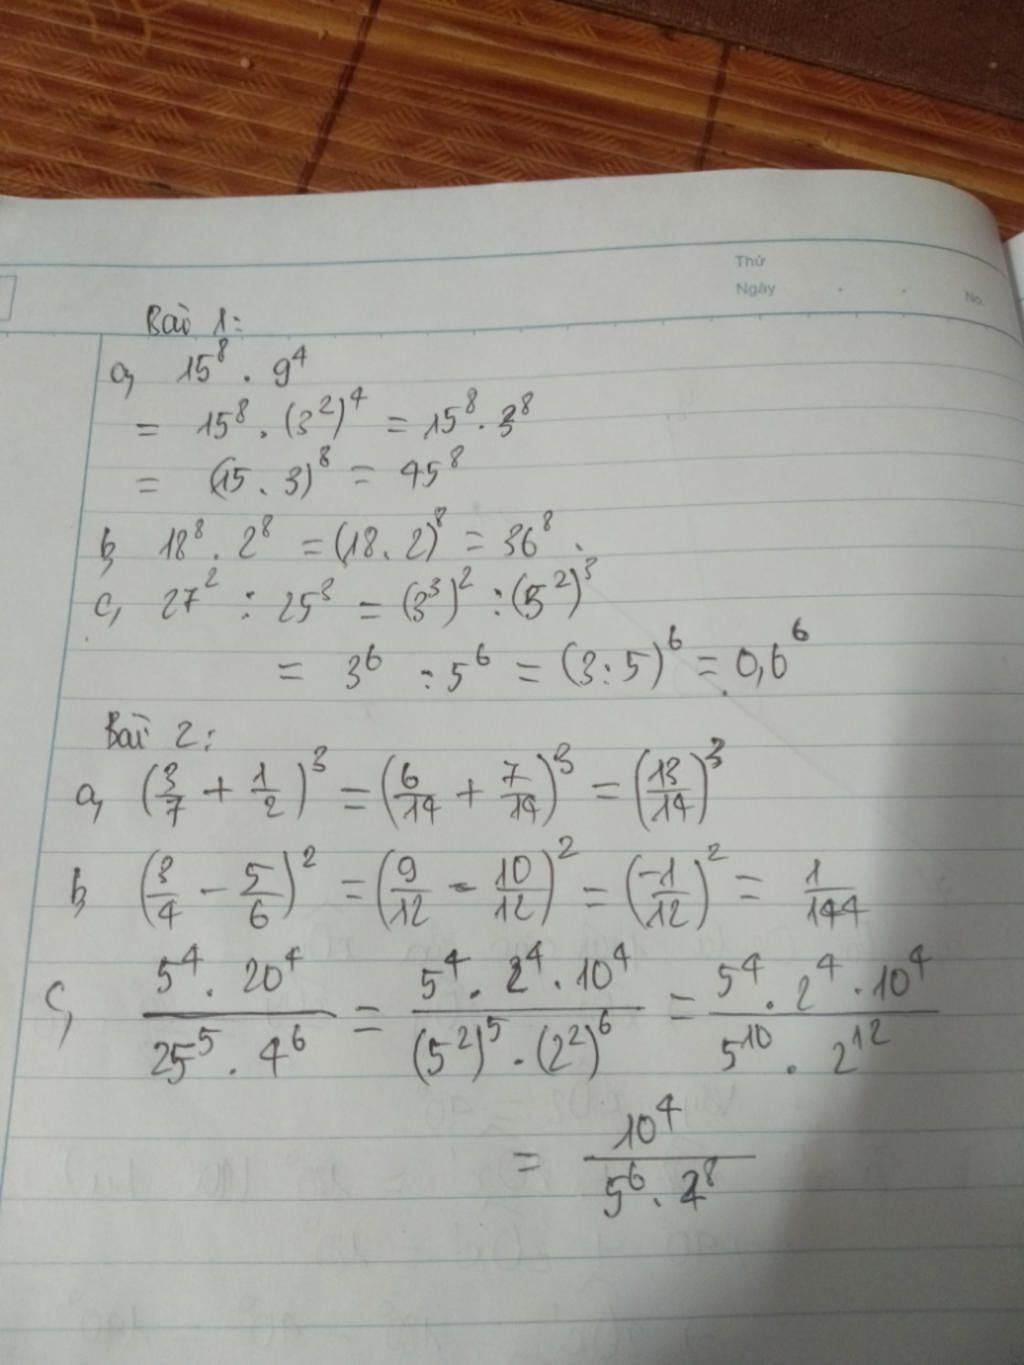 Thứ
Ngày . .
No.
Bài 1:
a, 15⁸ . 9⁴
= 15⁸ . (3²)⁴ = 15⁸ . 3⁸
= (15 . 3)⁸ = 45⁸
b, 18⁸ . 2⁸ = (18 . 2)⁸ = 36⁸ .
c, 27² : 25³ = (3³)² : (5²)³
= 3⁶ : 5⁶ = (3 : 5)⁶ = 0,6⁶
Bài 2:
a, (3/7 + 1/2)³ = (6/14 + 7/14)³ = (13/14)³
b, (3/4 - 5/6)² = (9/12 - 10/12)² = (-1/12)² = 1/144
c, (5⁴ . 20⁴)/(25⁵ . 4⁶) = (5⁴ . 2⁴ . 10⁴)/((5²)⁵ . (2²)⁶) = (5⁴ . 2⁴ . 10⁴)/(5¹⁰ . 2¹²)
= 10⁴/(5⁶ . 2⁸)